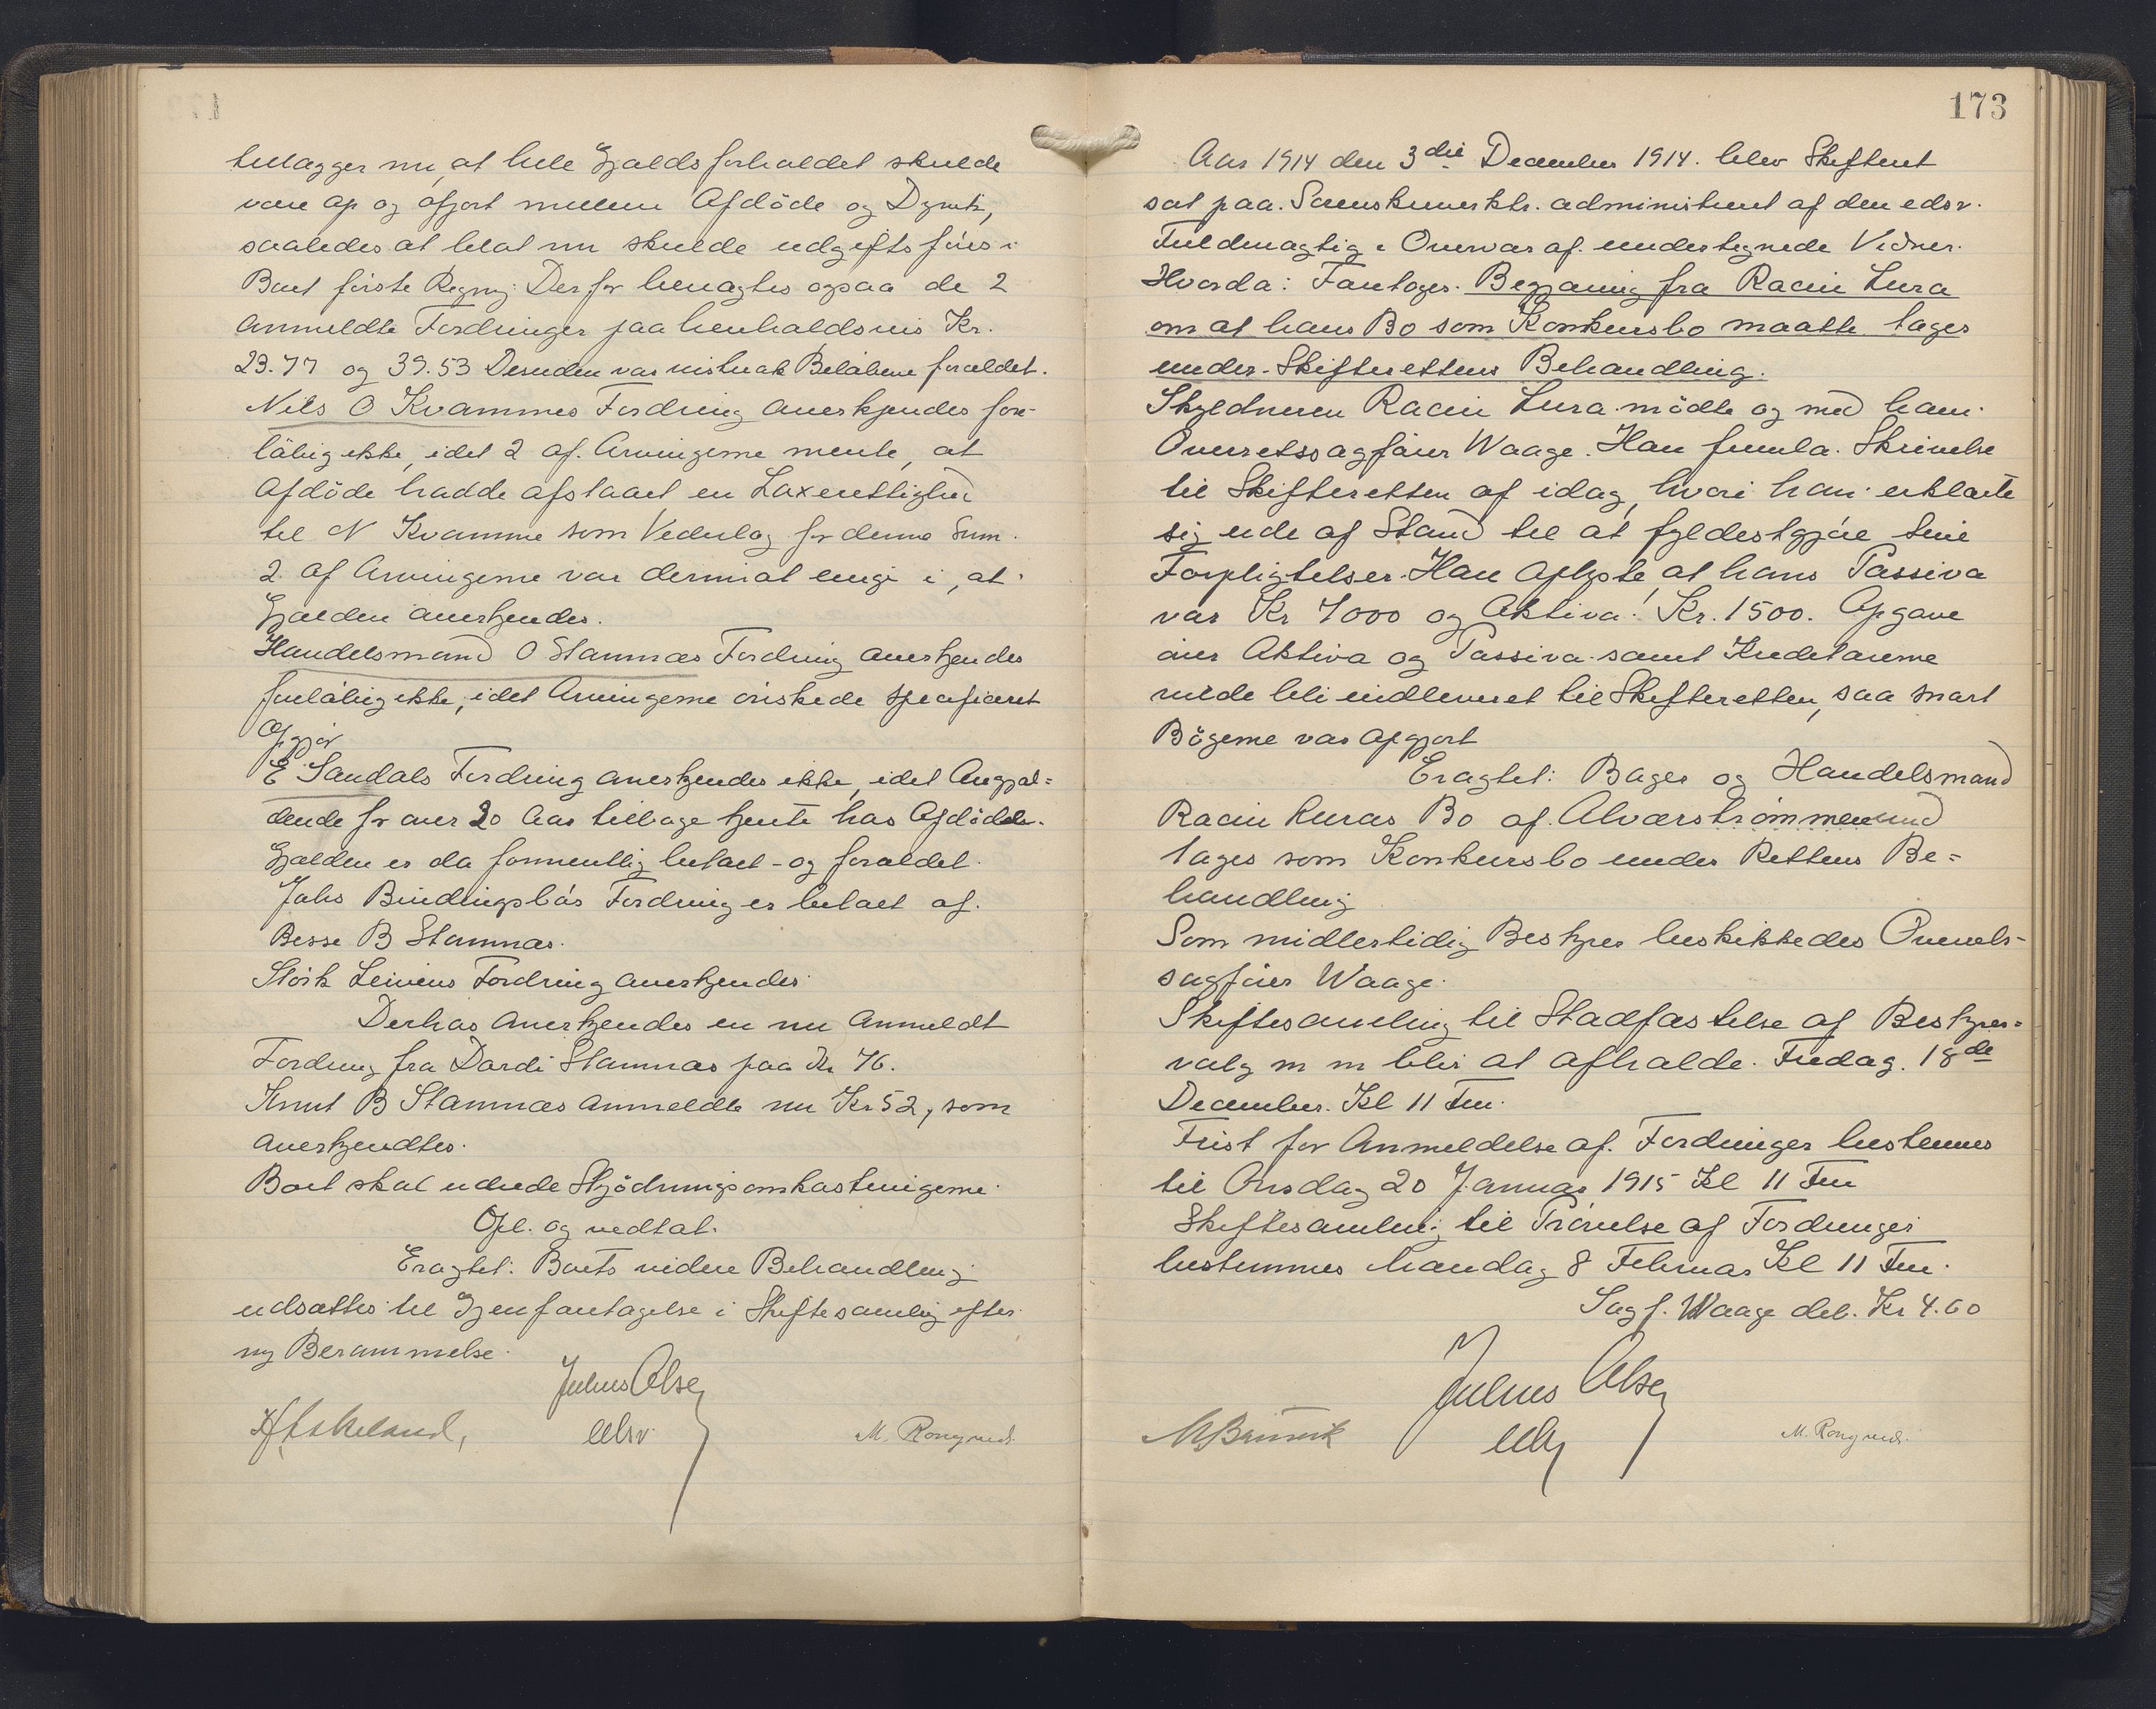 tillægger nu, at hele Gjældsforholdet skulde
være op og afgjort mellem Afdöde og
saaledes at blot nu skulde udgiftsföres i
Boet förste Regng. Derfor benægtes ogsaa de 2
anmeldte Fordringer paa henholdsvis Kr.
23.77 og 39.53 Desuden var vistnok Belöbene forældet.
Nils O Kvammes Fordring anerkjendes fore-
löbig ikke, idet 2 af Arvingerne mente, at
Afdöde hadde afstaaet en Laxerettighed
til N Kvamme som Vederlag for denne Sum.
2 af Arvingerne var derimot enige i, at
Gjælden anerkjendes.
Handelsmand O Stamnæs Fordring anerkjendes
forelöbig ikke, idet Arvingerne önskede specificeret
Opgjör
E Sandals Fordring anerkjendes ikke, idet Angjæl=
dende for over 20 Aar tilbage tjente hos Afdöde.
Gjælden er da formentlig betalt - og forældet.
Johs Bindingsbös Fordring er betalt af
Besse B Stamnæs.
Slösk Leiviens Fordring anerkjendes.
Derhos anerkjendes en nu anmeldt
Fordring fra Dardi Stamnæs paa Kr 76.
Knut B Stamnæs anmeldte nu Kr 52, som
anerkjendtes.
Boet skal udrede Skjödningsomkostningerne.
Opl. og vedtat.
Eragtet: Boets videre Behandling
udsættes til Gjenforetagelse i Skiftesamling efter
ny Berammelse.
Julius Olsen
H Askeland, edsv. M. Rongved.
173
Aar 1914 den 3die December 1914. blev Skifteret
sat paa Sorenskriverktr. administreret af den edsv.
Fuldmægtig i Overvær af undertegnede Vidner.
Hvorda: Foretoges. Begjæring fra Racin Lura
om at hans Bo som Konkursbo maatte tages
under Skifterettens Behandling.
Skyldneren Racin Lura mödte og med ham
Overretssagförer Waage. Han fremla Skrivelse
til Skifteretten af idag, hvori han erklærte
sig ude af Stand til at fyldestgjöre sine
Forpligtelser. Han oplyste, at hans Passiva
var Kr 7000 og Aktiva: Kr. 1500. Opgave
over Aktiva og Passiva samt Kreditorerne
vilde bli indleveret til Skifteretten, saa snart
Bögerne var opgjort
Eragtet: Bager og Handelsmand
Racin Luras Bo af Alværströmmen
tages som Konkursbo under Rettens Be=
handling
Som midlertidig Bestyrer beskikkedes Overrets-
sagförer Waage.
Skiftesamling til Stadfæstelse af Bestyrer=
valg m m blir at afholde Fredag 18de
December Kl 11 Fm.
Frist for Anmeldelse af Fordringer bestemmes
til Onsdag 20 Januar 1915 Kl 11 Fm
Skiftesamling til Prövelse af Fordringer
bestemmes Mandag 8 Februar Kl 11 Fm.
Sagf. Waage deb. Kr 4.60
Julius Olsen
edsv. M. Rongved.